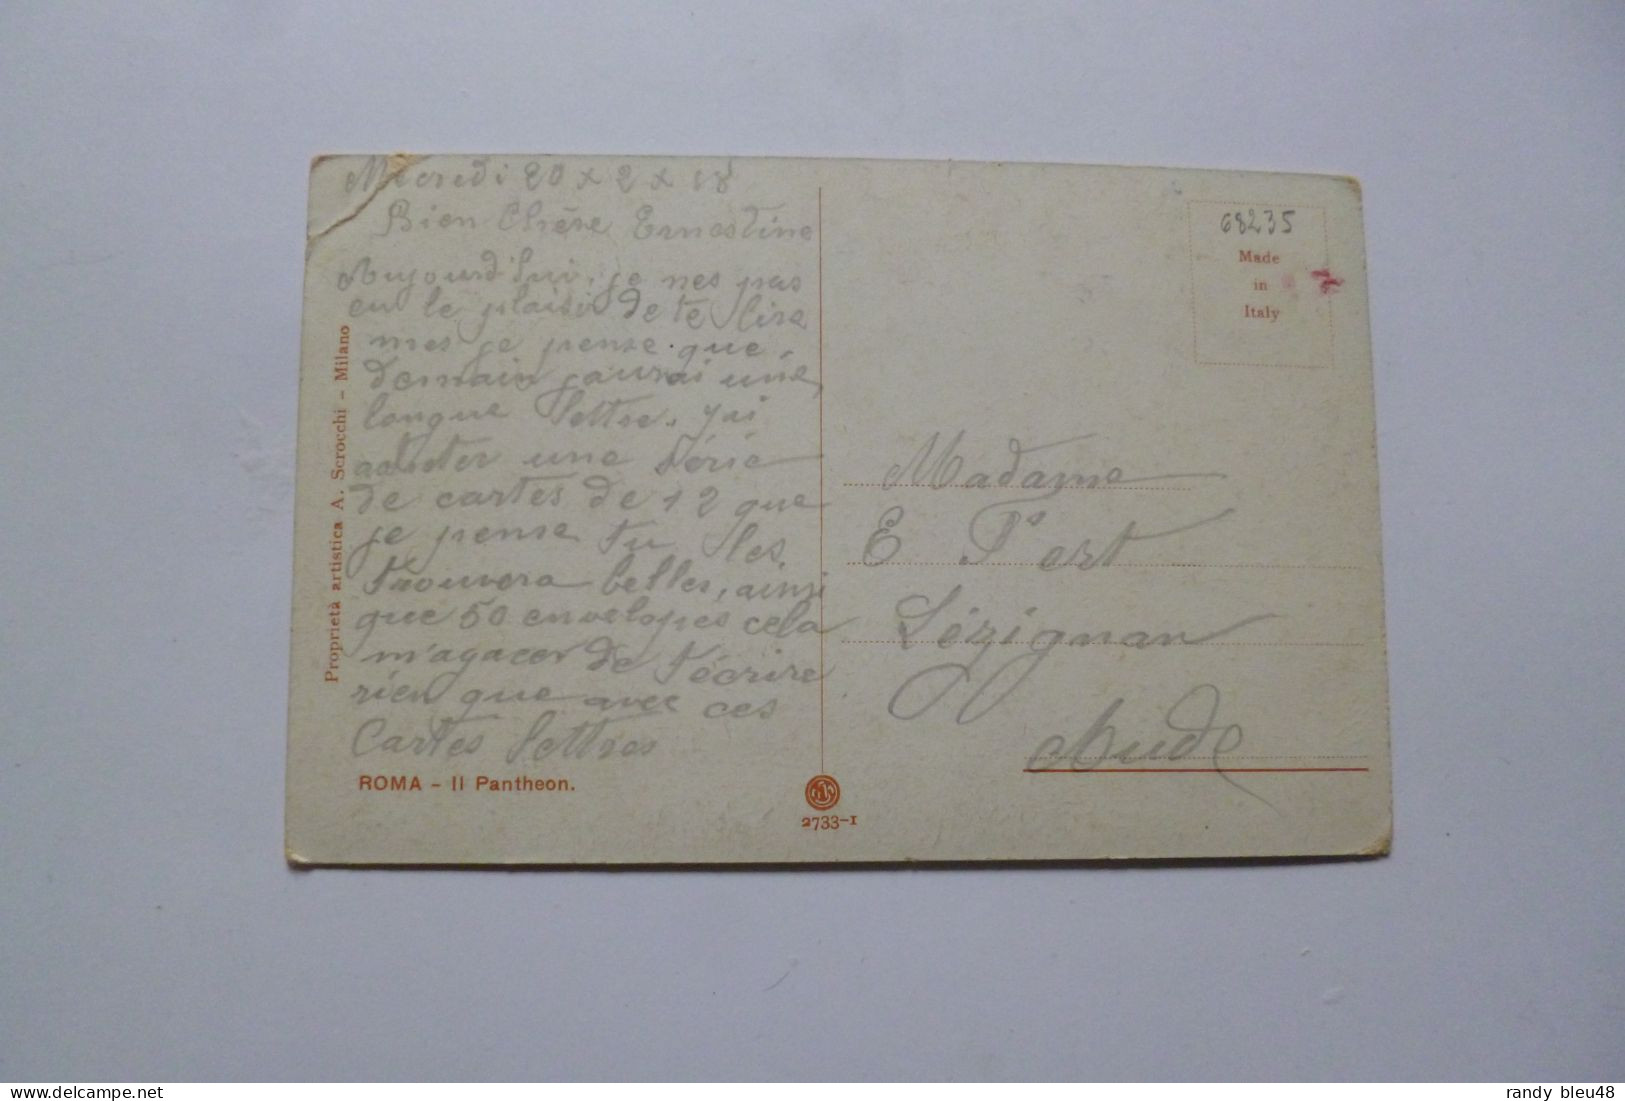 Mecredi 20 x 2 x 18
Bien Chère Ernestine
Aujourd'hui, je nes pas
eu le plaisir de te lire
mes je pense que
demain jaurai une
longue lettre. j'ai
acheter une série
de cartes de 12 que
je pense tu les
trouvera belles, ainsi
que 50 envelopes cela
m'agacer de t'écrire
rien que avec ces
Cartes lettres
Proprietà artistica A. Scrocchi - Milano
ROMA - Il Pantheon.
2733-1
68235
Made
in
Italy
Madame
E
Lézignan
Aude
randy bleu48